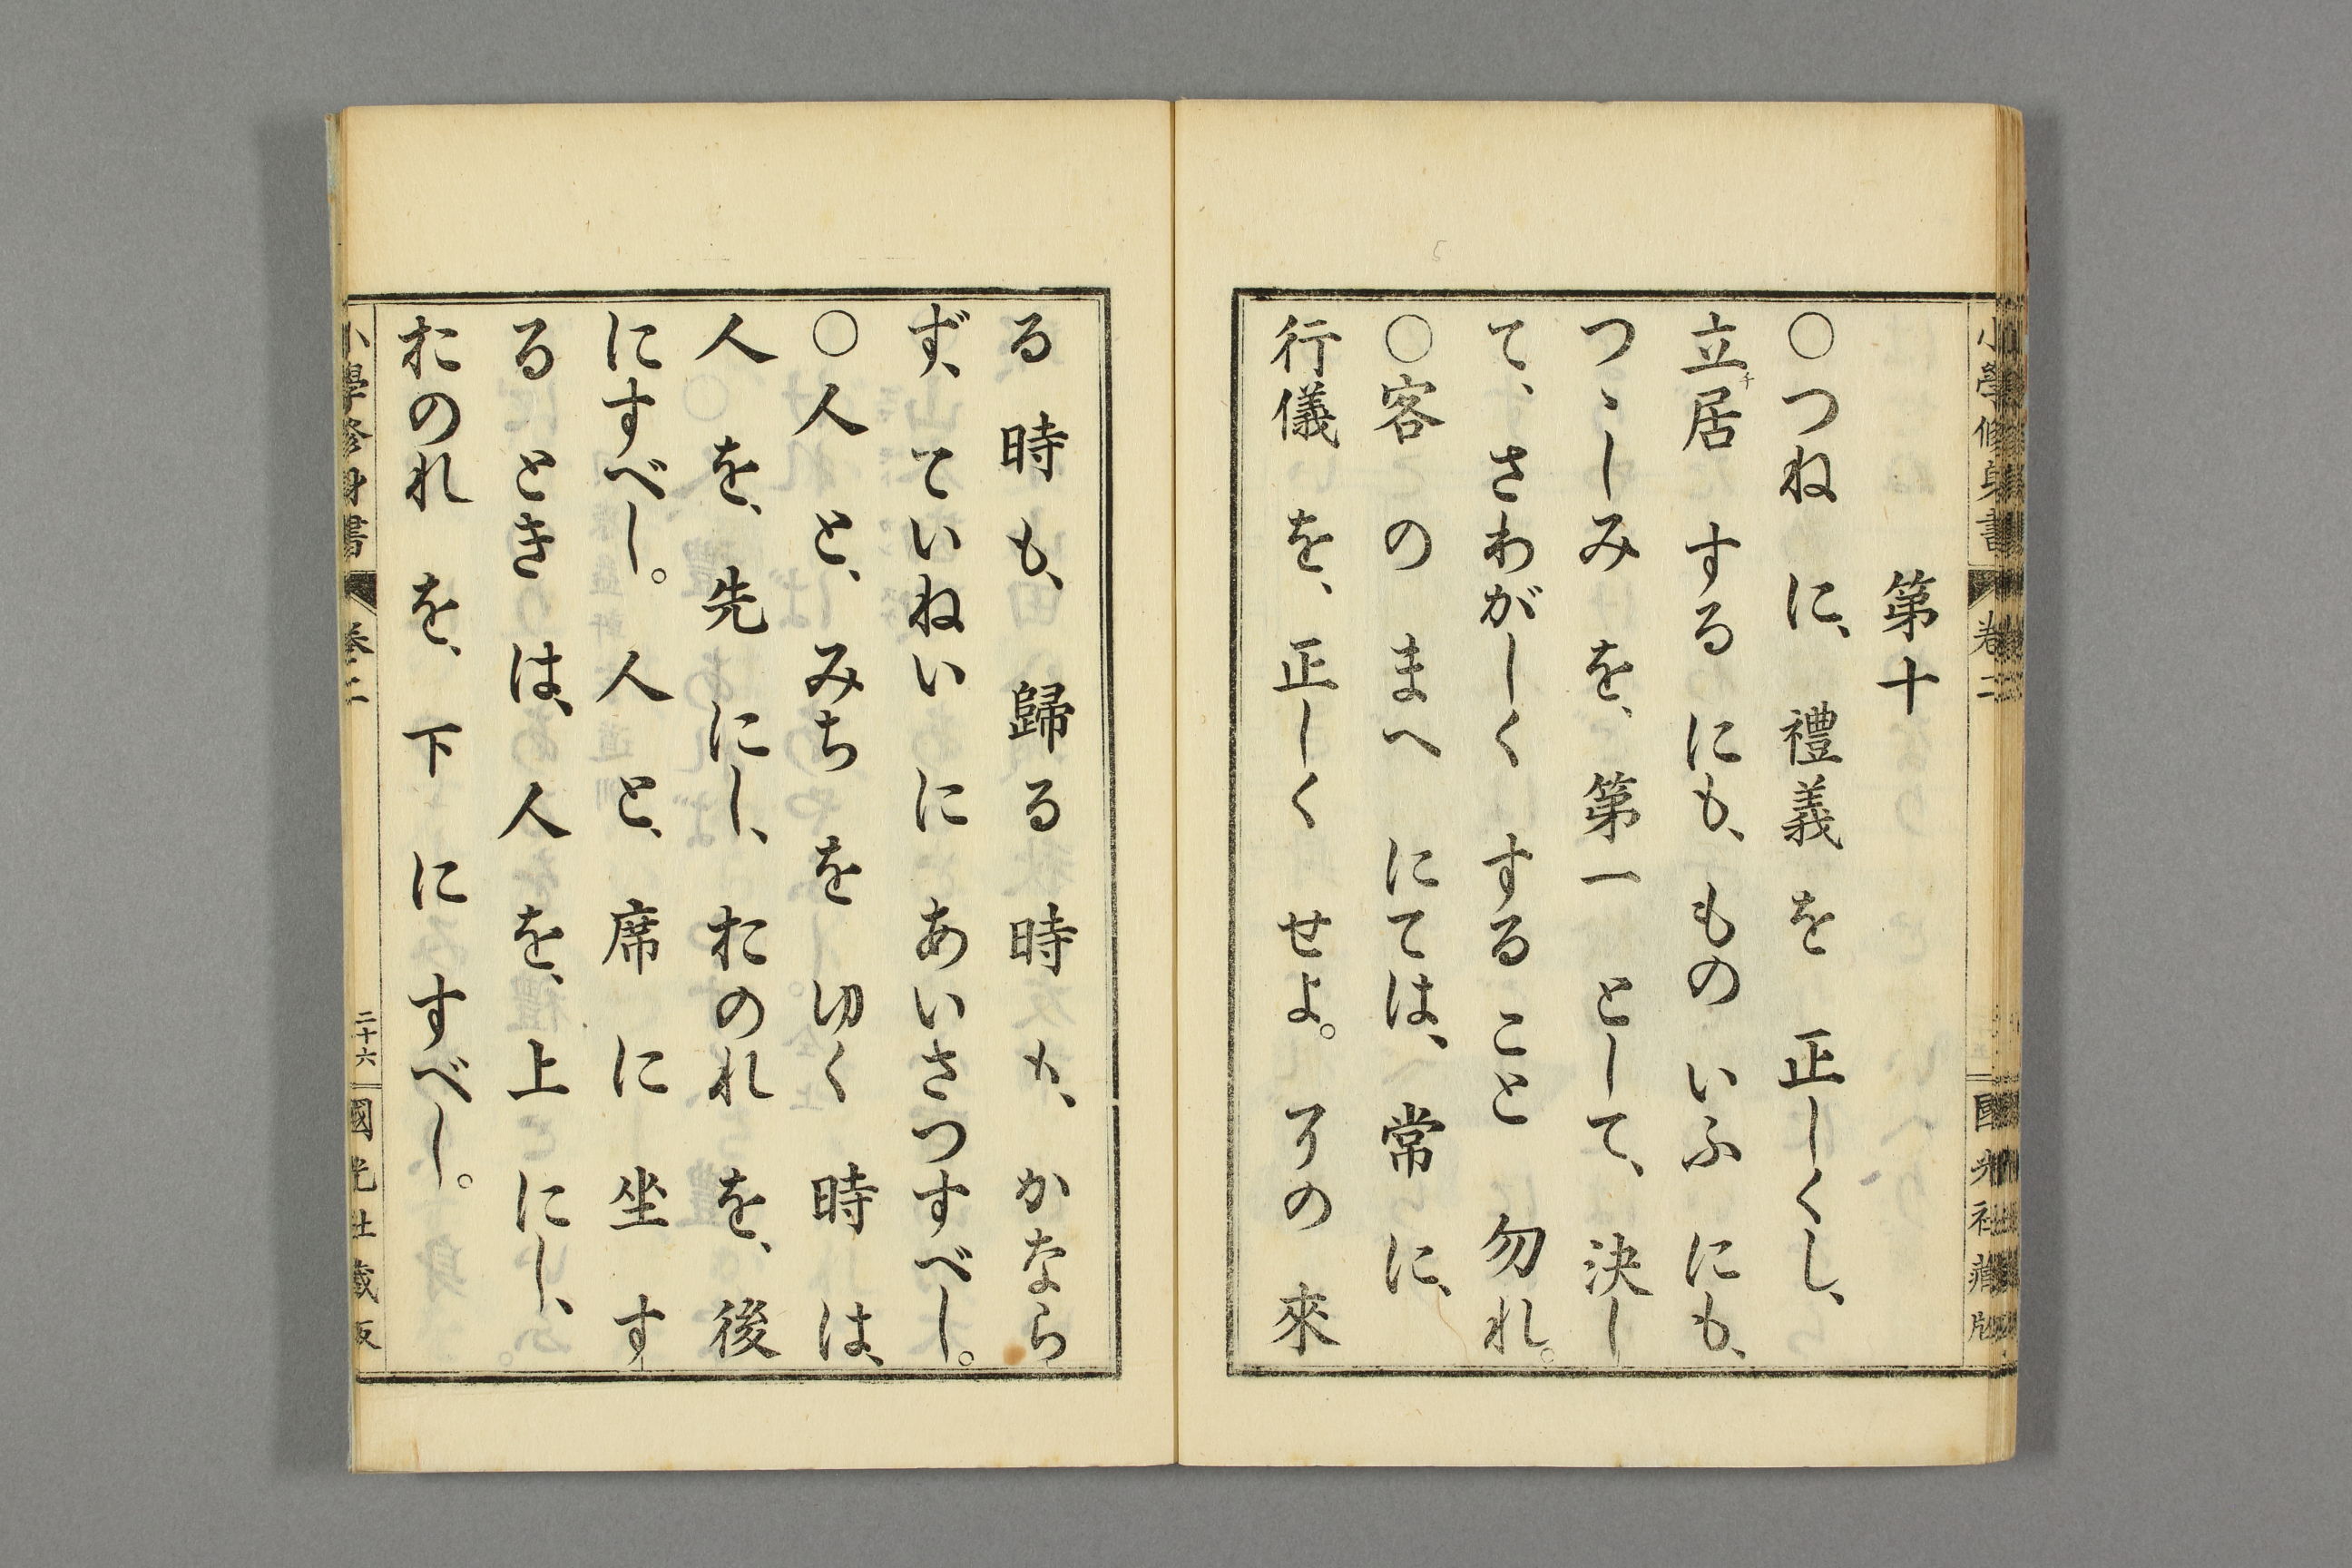 小學修身書 卷二 國光社藏版
第十
○つねに、禮義を正しくし、
立居するにも、ものいふにも、
つゝしみを、第一として、決し
て、さわがしくすること勿れ。
○客のまへにては、常に、
行儀を、正しくせよ。その來
る時も、歸る時も、かなら
ず、ていねいにあいさつすべし。
○人と、みちを切く時は、
人を、先にし、おのれを、後
にすべし。人と、席に坐す
るときは、人を、上にし、
おのれを、下にすべし。
小學修身書 卷二 二十六 國光社藏版